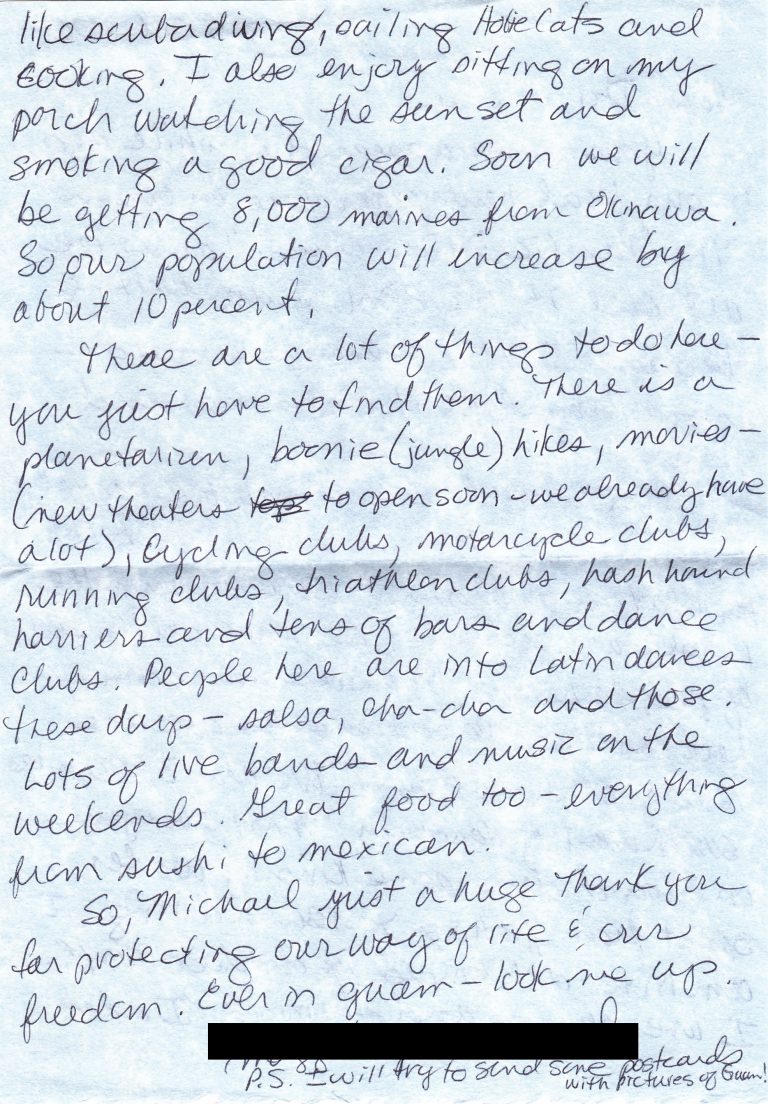 like scuba diving, sailing Hobie Cats and
cooking. I also enjoy sitting on my
porch watching the sunset and
smoking a good cigar. Soon we will
be getting 8,000 marines from Okinawa.
So our population will increase by
about 10 percent.
There are a lot of things to do here -
you just have to find them. There is a
planetarium, boonie (jungle) hikes, movies -
(new theaters to open soon - we already have
a lot), Cycling clubs, motorcycle clubs,
running clubs, triathlon clubs, hash hound
harriers and tens of bars and dance
clubs. People here are into Latin dances
these days - salsa, cha-cha and those.
Lots of live bands and music on the
weekends. Great food too - everything
from sushi to mexican.
So, Michael just a huge Thank you
for protecting our way of life & our
freedom. Ever in guam - look me up.
P.S. I will try to send some postcards
with pictures of Guam!